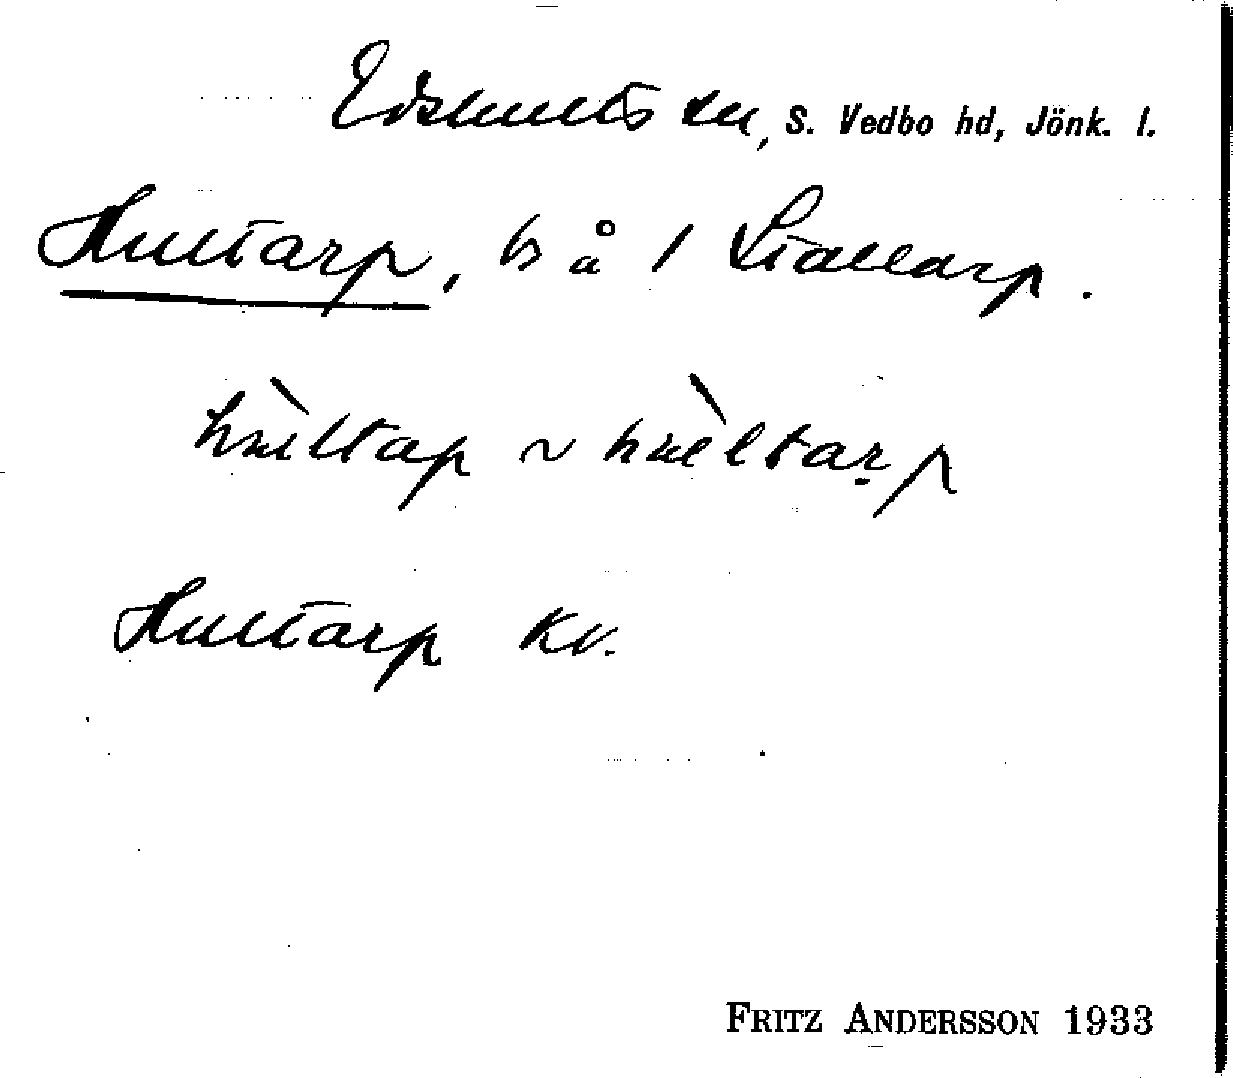 Edshults sn, S. Vedbo hd, Jönk. l.
Hultarp, bs å 1 Stallarp.
Hultarp Kv.
FRITZ ANDERSSON 1933